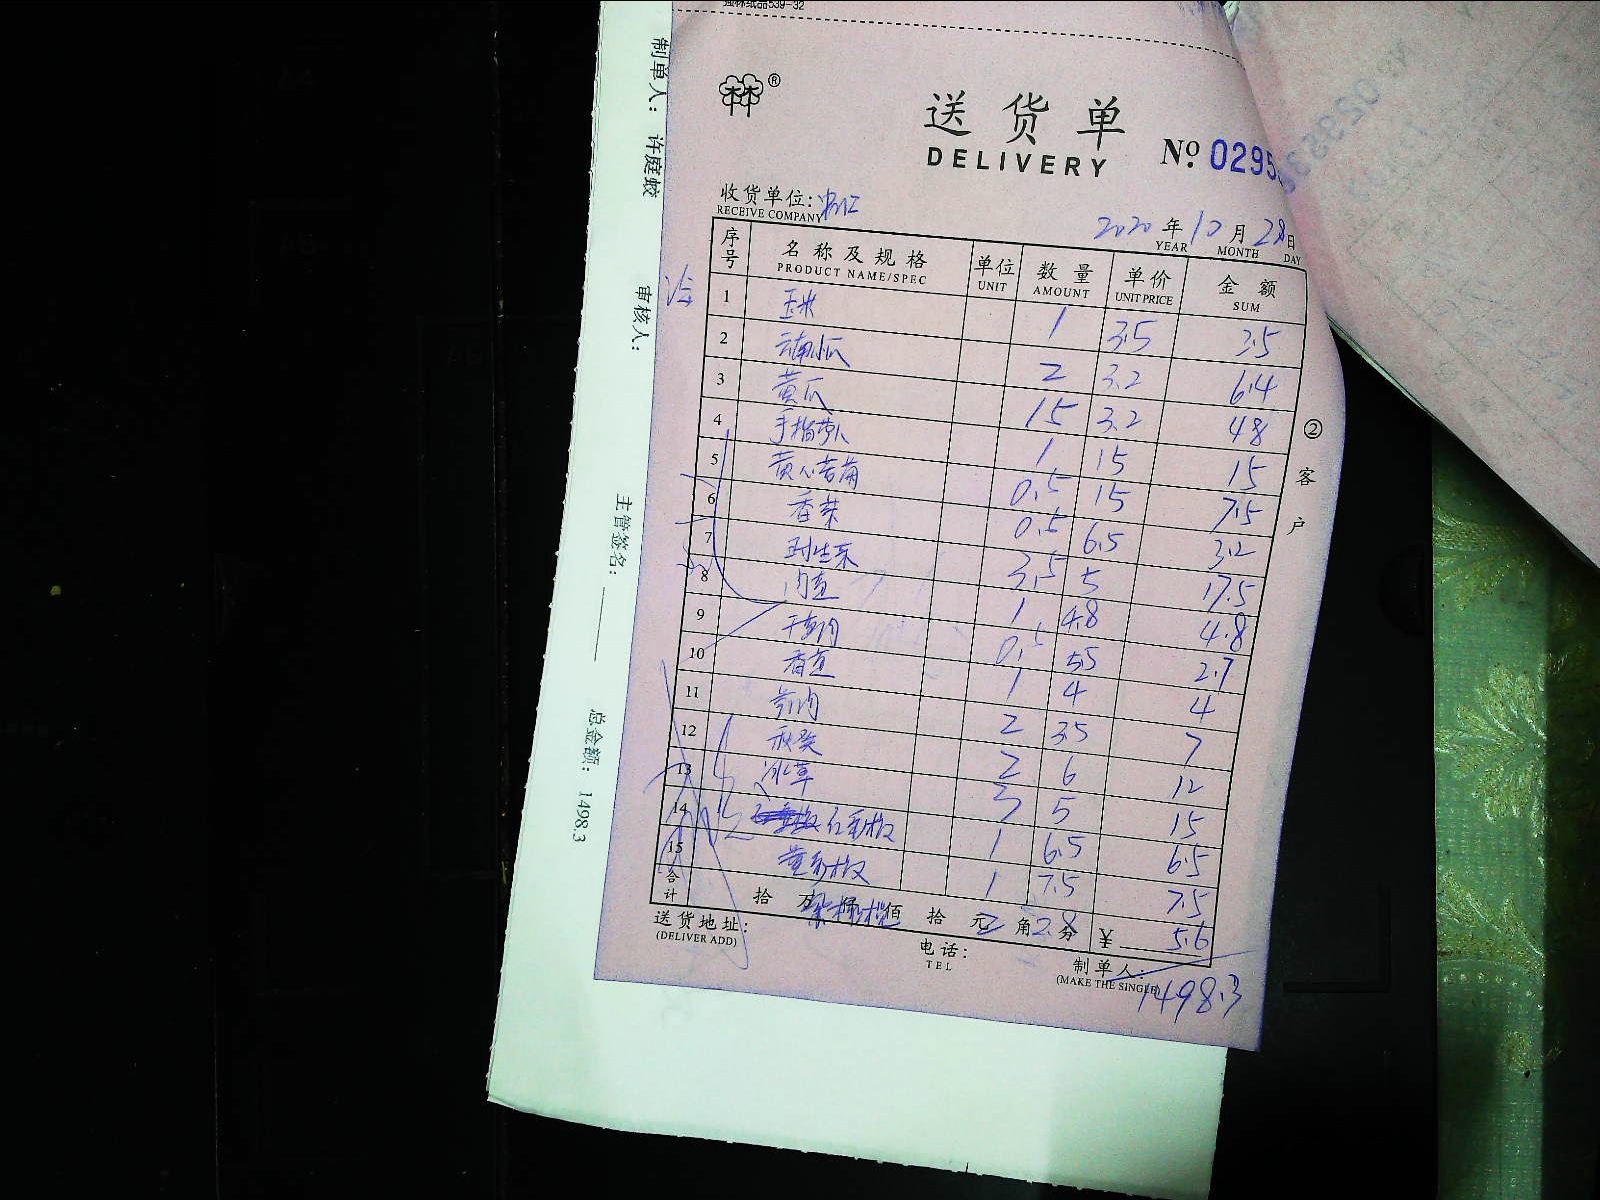 强林纸品539-32
林林®
送货单
DELIVERY
No 0295
收货单位:
RECEIVE COMPANY
2020 年 10 月 28 日
YEAR MONTH DAY
序号 名称及规格 单位 数量 单价 金额
PRODUCT NAME/SPEC UNIT AMOUNT UNIT PRICE SUM
1 玉米 1 3.5 3.5
2 云南小瓜 2 3.2 6.4
3 黄瓜 15 3.2 48
4 手指萝卜 1 15 15
5 黄心苦菊 0.5 15 7.5
6 香菜 0.5 6.5 3.2
7 3.5 5 17.5
8 1 4.8 4.8
9 0.5 55 2.7
10 1 4 4
11 2 35 7
12 秋葵 2 6 12
13 冰草 3 5 15
14 红彩椒 1 6.5 6.5
15 黄彩椒 1 7.5 7.5
合计 拾 万 仟 佰 拾 元 角 分 ¥ 5.6
2 2.8
送货地址:
(DELIVER ADD)
电话:
TEL
制单人:
(MAKE THE SINGLE)
1498.3
②客户
制单人: 许庭蛟
审核人:
主管签名:
总金额: 1498.3